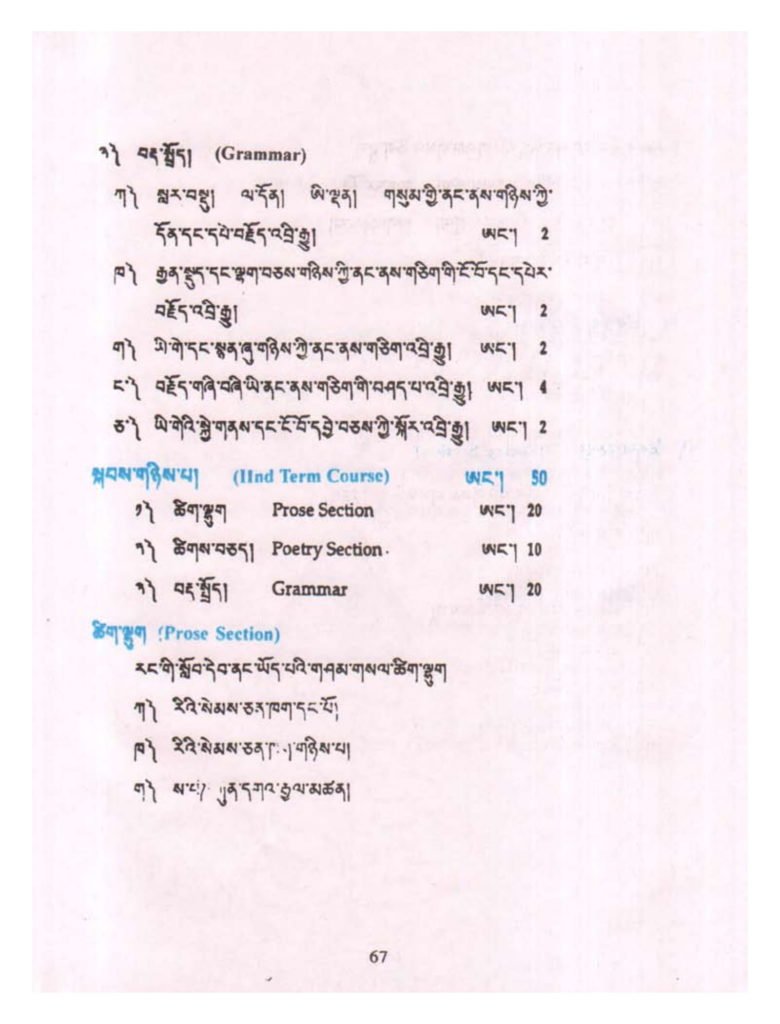 ༣༽ བརྡ་སྤྲོད། (Grammar)
ཀ༽ སླར་བསྡུ། ལ་དོན། ཨི་ལྡན། གསུམ་གྱི་ནང་ནས་གཉིས་ཀྱི་
དོན་དང་དཔེ་བརྗོད་འབྲི་རྒྱུ། ཨང་། 2
ཁ༽ རྒྱན་སྡུད་དང་ལྷག་བཅས་གཉིས་ཀྱི་ནང་ནས་གཅིག་གི་ངོ་བོ་དང་དཔེར་
བརྗོད་འབྲི་རྒྱུ། ཨང་། 2
ག༽ ཡི་གེ་དང་སྙན་ཞུ་གཉིས་ཀྱི་ནང་ནས་གཅིག་འབྲི་རྒྱུ། ཨང་། 2
ང་༽ བརྗོད་གཞི་བཞི་ཡི་ནང་ནས་གཅིག་གི་བཤད་པ་འབྲི་རྒྱུ། ཨང་། 4
ཅ་༽ ཡི་གེའི་སྐྱེ་གནས་དང་ངོ་བོ་དབྱེ་བཅས་ཀྱི་སྐོར་འབྲི་རྒྱུ། ཨང་། 2
སྐབས་གཉིས་པ། (IInd Term Course) ཨང་། 50
༡༽ ཚིག་ལྷུག Prose Section ཨང་། 20
༢༽ ཚིགས་བཅད། Poetry Section ཨང་། 10
༣༽ བརྡ་སྤྲོད། Grammar ཨང་། 20
ཚིག་ལྷུག (Prose Section)
རང་གི་སློབ་དེབ་ནང་ཡོད་པའི་གཤམ་གསལ་ཚིག་ལྷུག
ཀ༽ རིའི་སེམས་ཅན་ཁག་དང་པོ།
ཁ༽ རིའི་སེམས་ཅན་ གཉིས་པ།
ག༽ དགའ་རྒྱལ་མཚན།
67